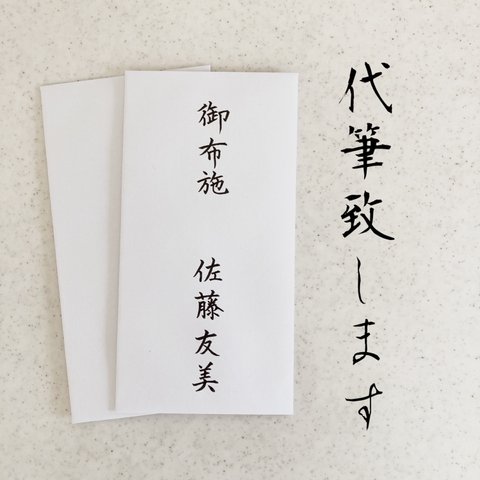 代筆致します
御布施
佐藤友美